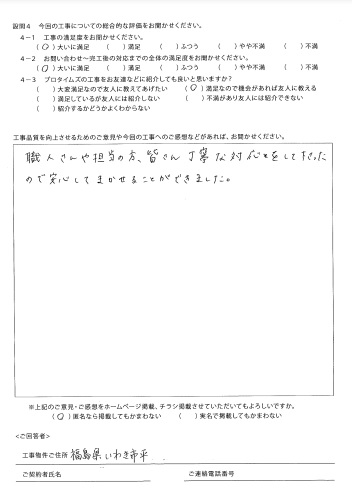 設問4 今回の工事についての総合的な評価をお聞かせください。
4-1 工事の満足度をお聞かせください。
(○)大いに満足 ( )満足 ( )ふつう ( )やや不満 ( )不満
4-2 お問い合わせ~完工後の対応までの全体の満足度をお聞かせください。
(○)大いに満足 ( )満足 ( )ふつう ( )やや不満 ( )不満
4-3 プロタイムズの工事をお友達などに紹介しても良いと思いますか?
( )大変満足なので友人に教えてあげたい (○)満足なので機会があれば友人に教える
( )満足しているが友人には紹介しない ( )不満があり友人には紹介できない
( )紹介するかどうかよくわからない
工事品質を向上させるためのご意見や今回の工事へのご感想などがあれば、お聞かせください。
職人さんや担当の方、皆さん丁寧な対応をして下さった
ので安心してまかせることができました。
※上記のご意見・ご感想をホームページ掲載、チラシ掲載させていただいてもよろしいですか。
(○)匿名なら掲載してもかまわない ( )実名で掲載してもかまわない
<ご回答者>
工事物件ご住所 福島県いわき市平
ご契約者氏名 ご連絡電話番号